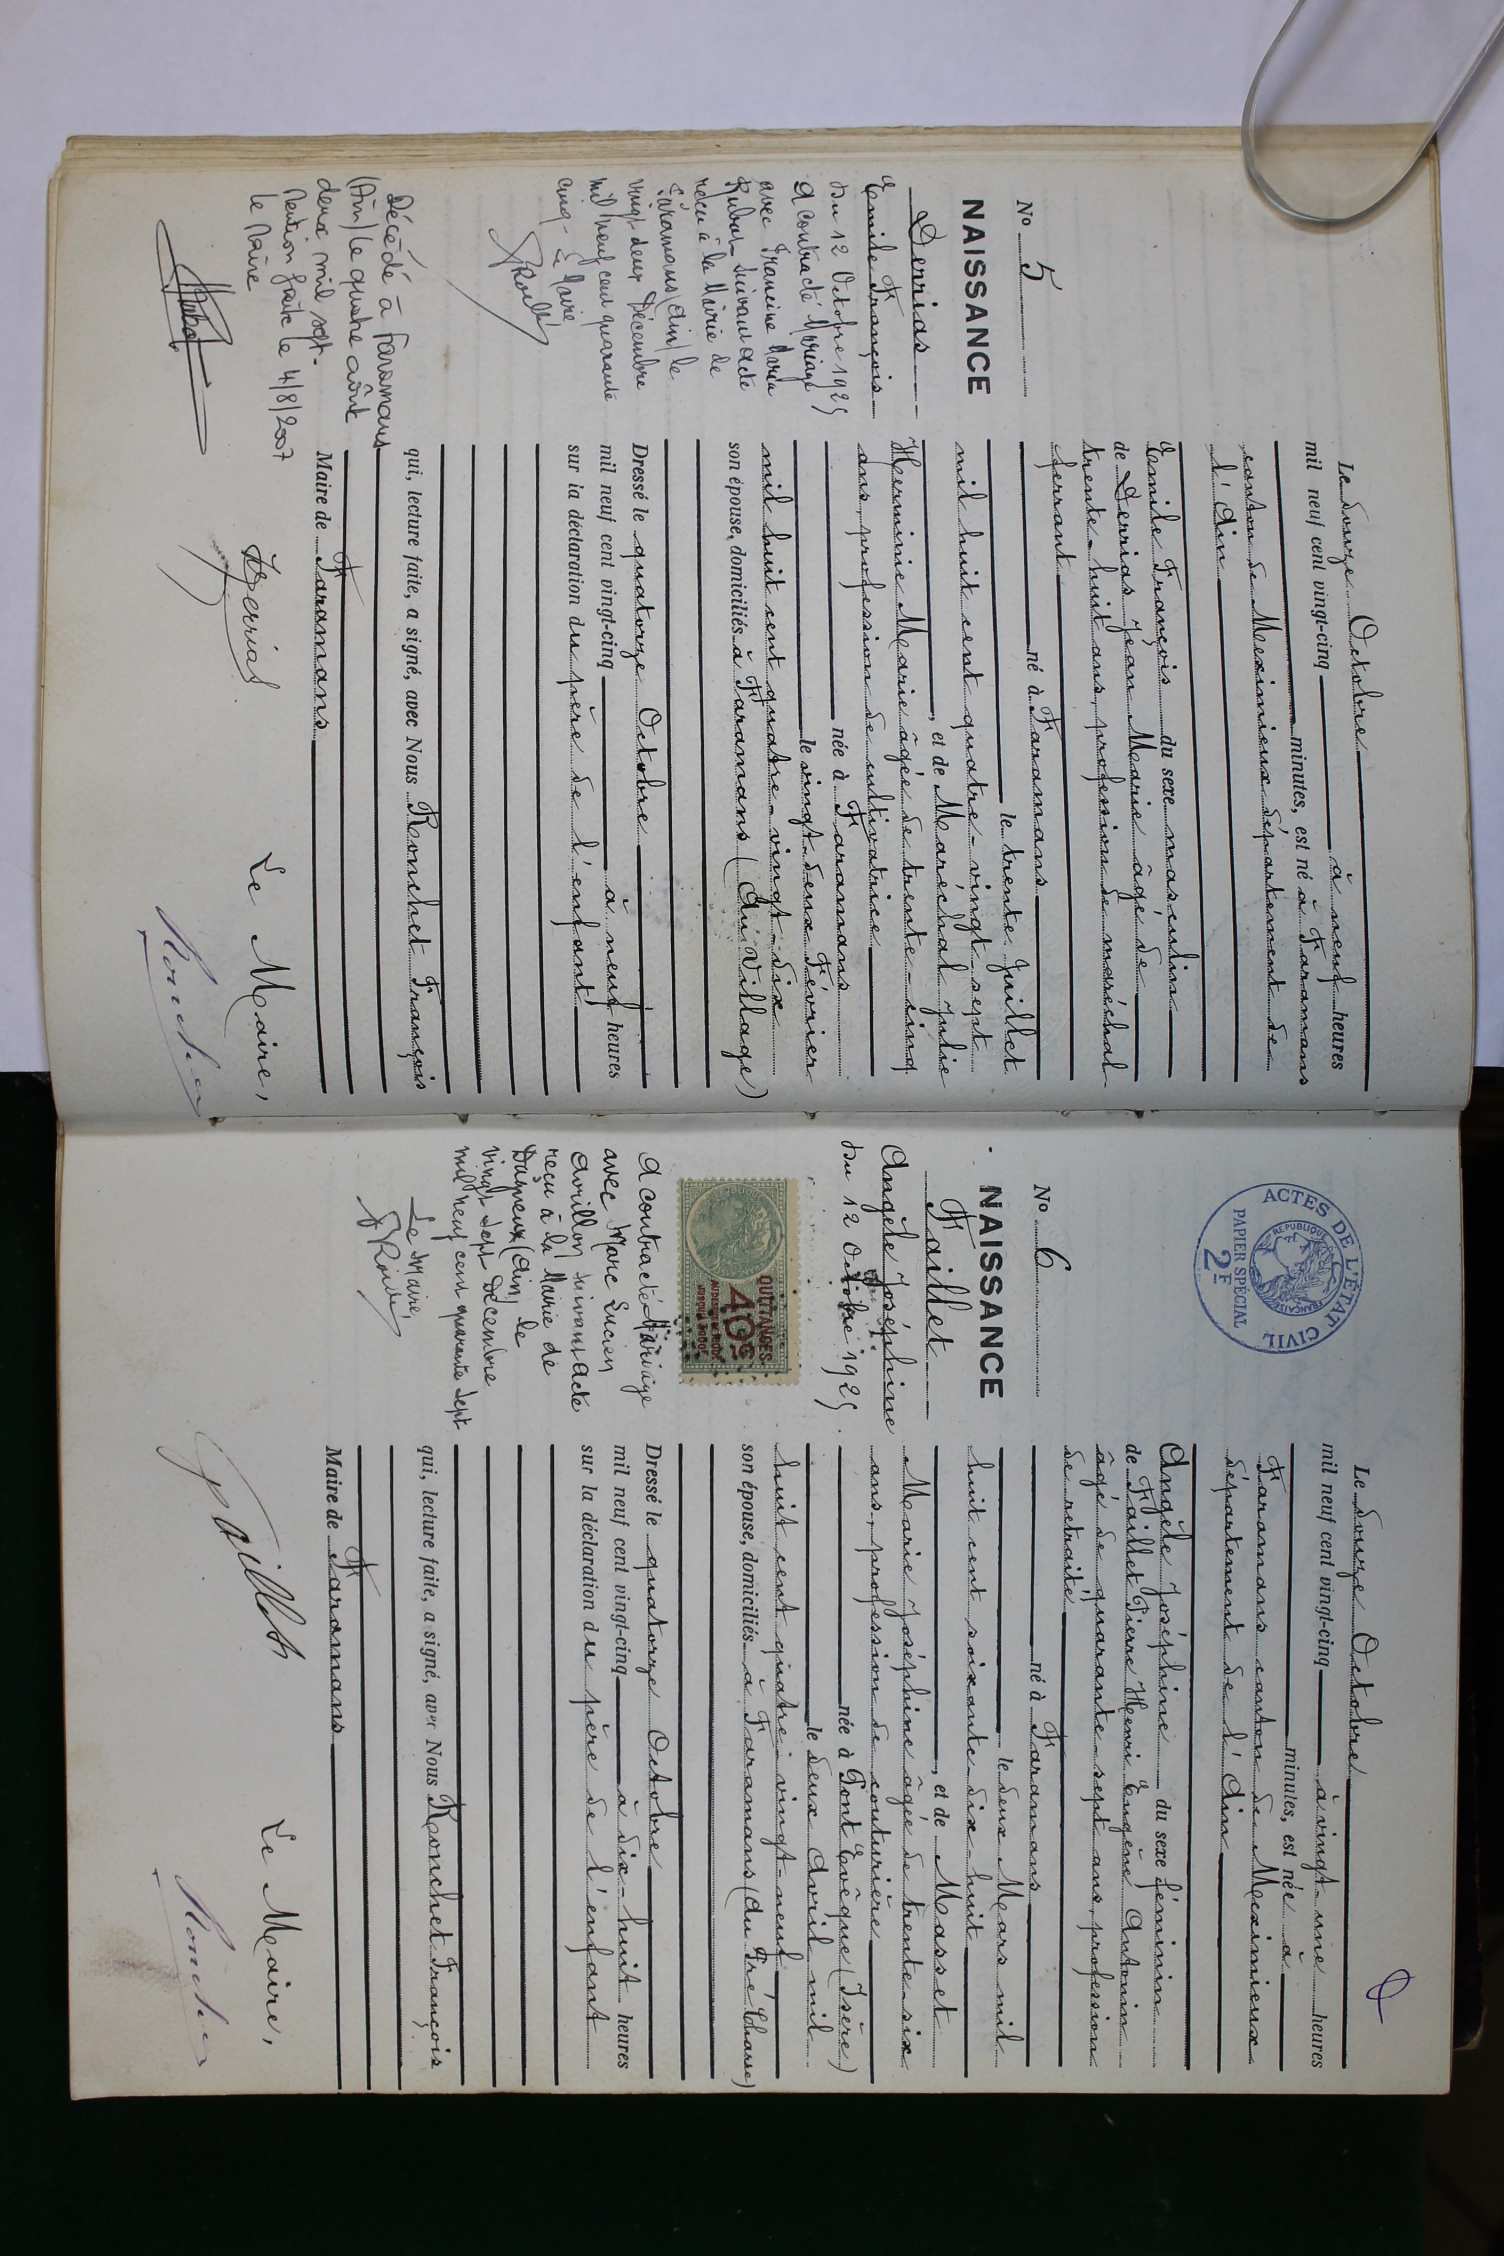 No 5
NAISSANCE
Derrias
Emile François
Du 12 Octobre 1925
a contracté Mariage
avec Francine Maria
suivant acte
recu à la Mairie de
Faramans (Ain) le
vingt deux Décembre
mil neuf cent quarante
cinq - Le Maire
Décédé à Faramans
(Ain) le quatre août
deux mil sept.
Mention faite le 4/8/2007
le Maire
Le douze Octobre
mil neuf cent vingt-cinq à neuf heures
minutes, est né à Faramans
canton de Meximieux département de
l'Ain
Emile François du sexe masculin
de Derrias Jean Marie âgé de
trente-huit ans, profession de maréchal
ferrant
né à Faramans
le trente Juillet
mil huit cent quatre-vingt-sept
, et de Maréchal Julie
Herminie Marie âgée de trente-cinq
ans, profession de cultivatrice
née à Faramans
le vingt-deux Février
mil huit cent quatre-vingt-dix
son épouse, domiciliés à Faramans (Au Village)
Dressé le quatorze Octobre
mil neuf cent vingt-cinq à neuf heures
sur la déclaration du père de l'enfant
qui, lecture faite, a signé, avec Nous Ronchet François
Maire de Faramans
Derrias
Le Maire,
Ronchet
ACTES DE L'ÉTAT CIVIL
RÉPUBLIQUE FRANÇAISE
PAPIER SPÉCIAL
2F
No 6
NAISSANCE
Faillet
Angèle Joséphine
Du 12 Octobre 1925
QUITTANCES
40c
a contracté Mariage
avec Marc Lucien
Avrillon suivant acte
reçu à la Mairie de
Dagneux (Ain) le
vingt sept Décembre
mil neuf cent quarante sept
Le Maire,
Le douze Octobre
mil neuf cent vingt-cinq à vingt-une heures
minutes, est née à
Faramans canton de Meximieux
département de l'Ain
Angèle Joséphine du sexe féminin
de Faillet Pierre Henri Eugène Antonin
âgé de quarante-sept ans, profession
de retraité
né à Faramans
le deux Mars mil
huit cent soixante-dix-huit
, et de Masset
Marie Joséphine âgée de trente-six
ans, profession de couturière
née à Pont Evêque (Isère)
le deux Avril mil
huit cent quatre-vingt-neuf
son épouse, domiciliés à Faramans (Au Pré Chasse)
Dressé le quatorze Octobre
mil neuf cent vingt-cinq à dix-huit heures
sur la déclaration du père de l'enfant
qui, lecture faite, a signé, avec Nous Ronchet François
Maire de Faramans
Faillet
Le Maire,
Ronchet